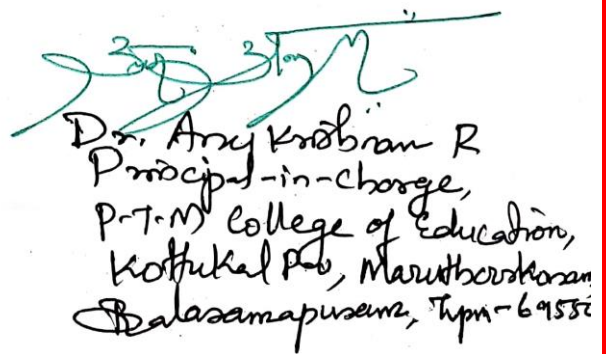 Dr. Arsy Krishnan R
Principal-in-charge,
P.T.M College of Education,
Kottukal P.O, Maruthoorkonam
Balaramapuram, Tvpm-6955